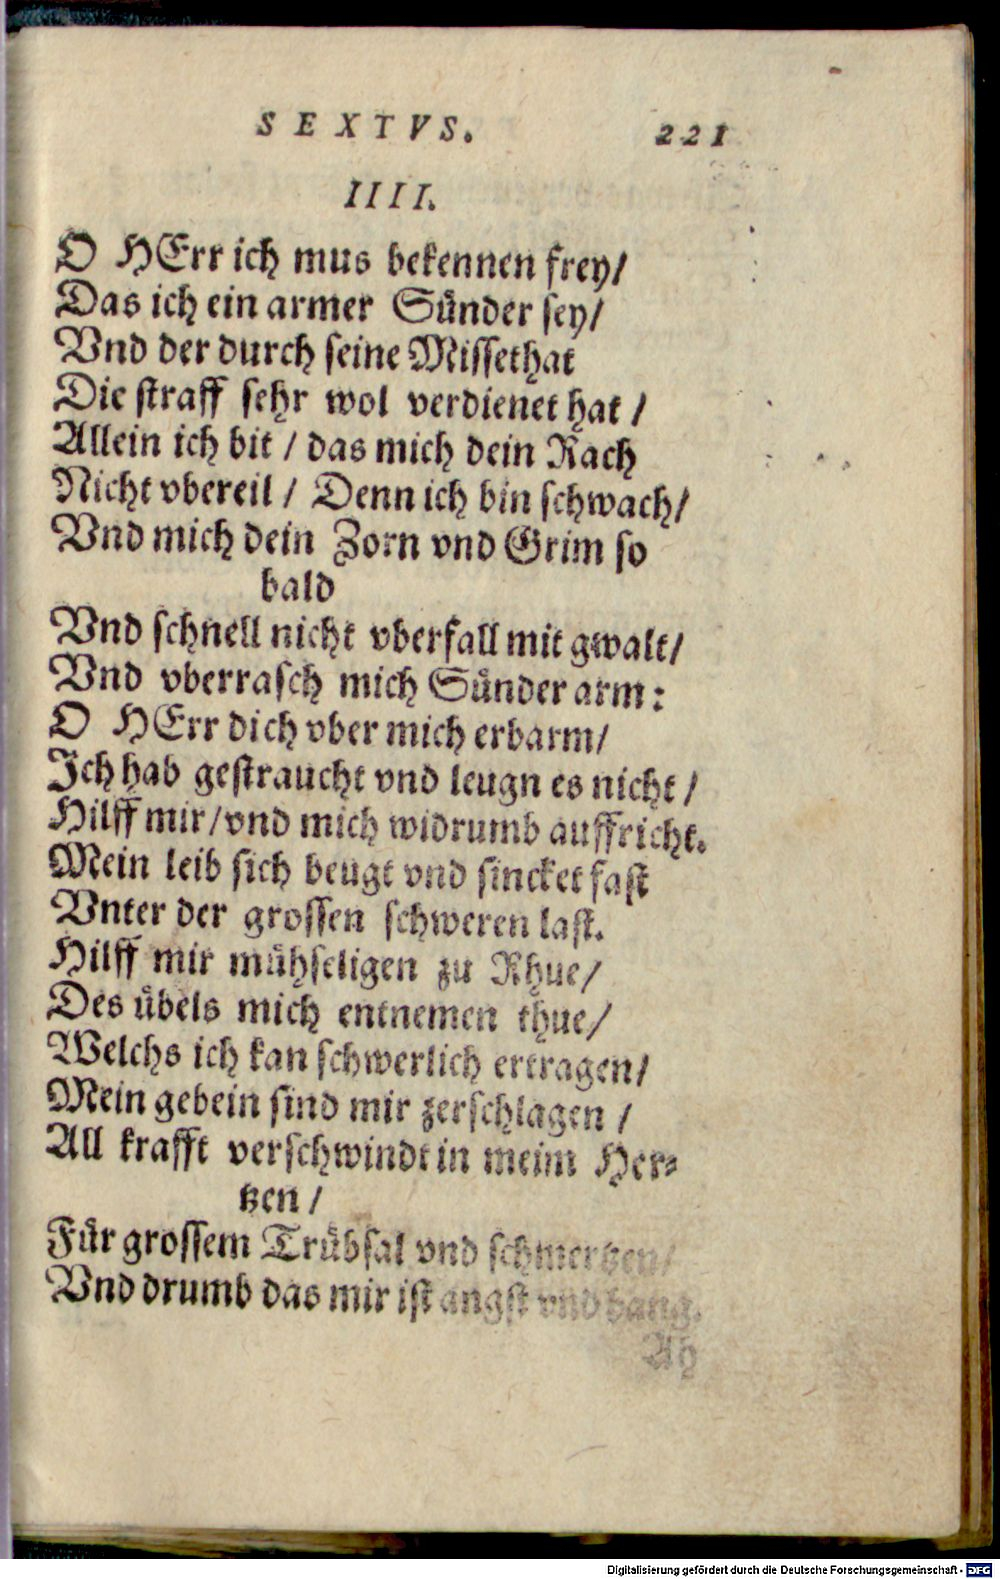 SEXTVS. 221
IIII.
O HErr ich mus bekennen frey/
Das ich ein armer Sünder sey/
Vnd der durch seine Missethat
Die straff sehr wol verdienet hat /
Allein ich bit / das mich dein Rach
Nicht vbereil / Denn ich bin schwach/
Vnd mich dein Zorn vnd Grim so
bald
Vnd schnell nicht vberfall mit gwalt/
Vnd vberrasch mich Sünder arm:
O HErr dich vber mich erbarm/
Ich hab gestraucht vnd leugn es nicht /
Hilff mir/vnd mich widrumb auffricht.
Mein leib sich beugt vnd sincket fast
Vnter der grossen schweren last.
Hilff mir mühseligen zu Rhue/
Des übels mich entnemen thue/
Welchs ich kan schwerlich ertragen/
Mein gebein sind mir zerschlagen /
All krafft verschwindt in meim Her⸗
tzen /
Für grossem Trübsal vnd schmertzen/
Vnd drumb das mir ist angst vnd bang.
Ah
Digitalisierung gefördert durch die Deutsche Forschungsgemeinschaft - DFG